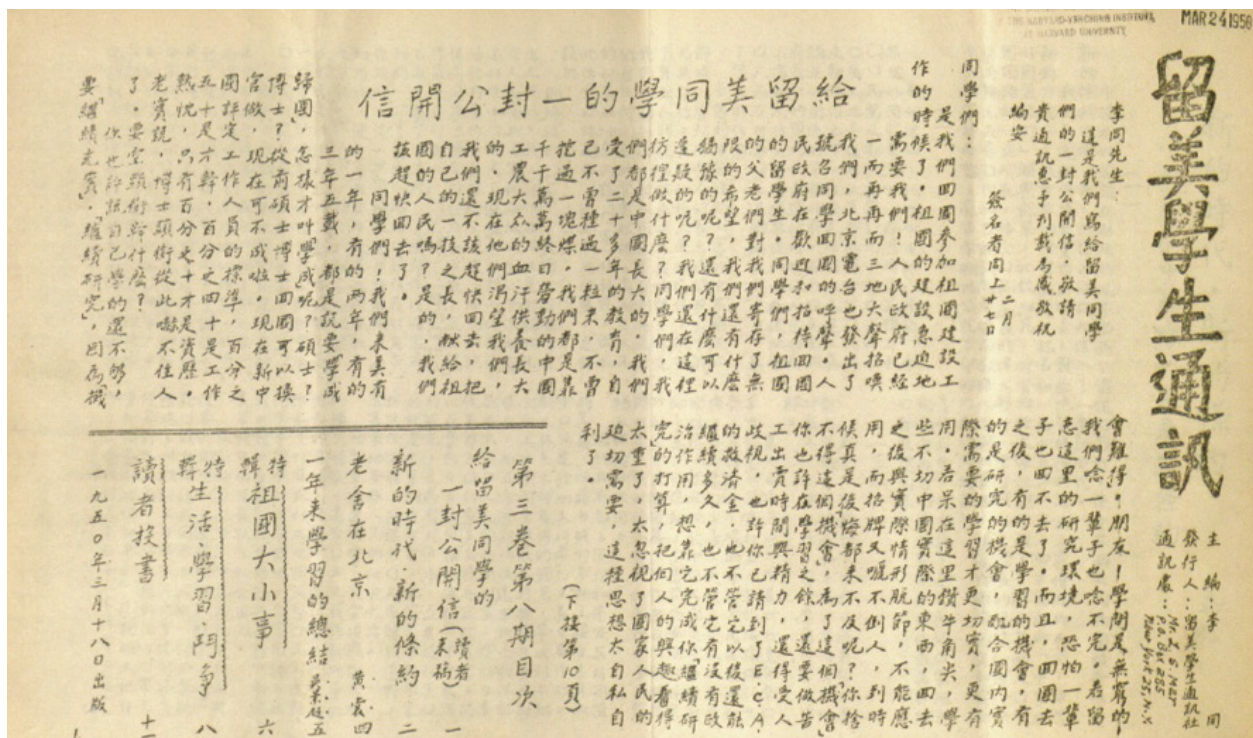 MAR 24 1950
留美學生通訊
主 編：李 同
發行人：留美學生通訊社
通訊處：
P.O. Box 255
New York 25, N.Y.
給留美同學的一封公開信
李同先生：
這是我們寫給留美同學
們的一封公開信，敬請
貴通訊惠予刊載為感敬祝
編安
簽名者同上 二月廿七日
同學們：
是我們回國參加祖國建設工
作的時候了。祖國的建設急迫地
需要我們！人民政府已經
一而再再而三地大聲招喚
我們，北京電台也發出了
號召同學回國的呼聲。人
民政府在歡迎和招待回國
的留學生。同學們，祖國
的父老們對我們寄存了無
限的希望，我們還有什麼
猶豫的呢？還有什麼可以
遲疑的呢？我們還在這裡
彷徨做什麼？同學們，我
們都是中國長大的，我們
受了二十多年的教育，自
己不曾種過一粒米，不曾
挖過一塊煤。我們都是靠
千千萬萬終日勞動的中國
工農大众的血汗供養長大
的。現在他們渴望我們，
我們還不該趕快回去，把
自己的一技之長，献給祖
國的人民嗎？是的，我們
該趕快回去了。
同學們！我們來美有
的一年，有的兩年，有的
三年五載，都是說要學成
歸國，怎樣才叫學成呢？碩士？
博士？從前碩士博士回國可以換
官做，現在可不成啦。現在新中
國評定工作人員的標準，百分之
五十是才幹，百分之四十是工作
熱忱，只有百分之十才是資歷。
老實說，博士頭銜從此嚇不住人
了。要空頭銜幹什麼？
你也許說自己學的還不够，
要「繼續充實」，「繼續研究」，因為「機
會難得」。朋友！學問是無窮的！
我們念一輩子也念不完。若留
恋這里的研究环境，恐怕一輩
子也回不去了。而且，回國去
之後，有的是學習的機會，有
的是研究的機會，配合國內實
際需要的學習才更切實，更有
用。若呆在這里鑽牛角尖，學
些不切中國實際的東西，回去
之後與實際情形脫節，不能應
用，而招牌又嚇不倒人，到時
候真是後悔都來不及呢？「你捨
不得這個機會」，為了這個機會
你也許在學習之餘，還要做苦
工出賣時間與精力，還得受人
歧視。也許你已請到了E.C.A.
的救濟金，也不管它以後還能
繼續多久，也不管它有沒有政
治作用，想靠它完成你「繼續研
究」的打算，把個人的興趣看得
太重了，太忽視了國家人民的
迫切需要，這種思想太自私自
利了。
（下接第10頁）
第三卷第八期目次
給留美同學的
一封公開信（讀者來稿） 一
新的時代·新的條約 二
老舍在北京 黃雲 四
一年來學習的總結 五
特輯 祖國大小事 六
特輯 生活·學習·鬥爭 八
讀者投書 十一
一九五〇年三月十八日出版